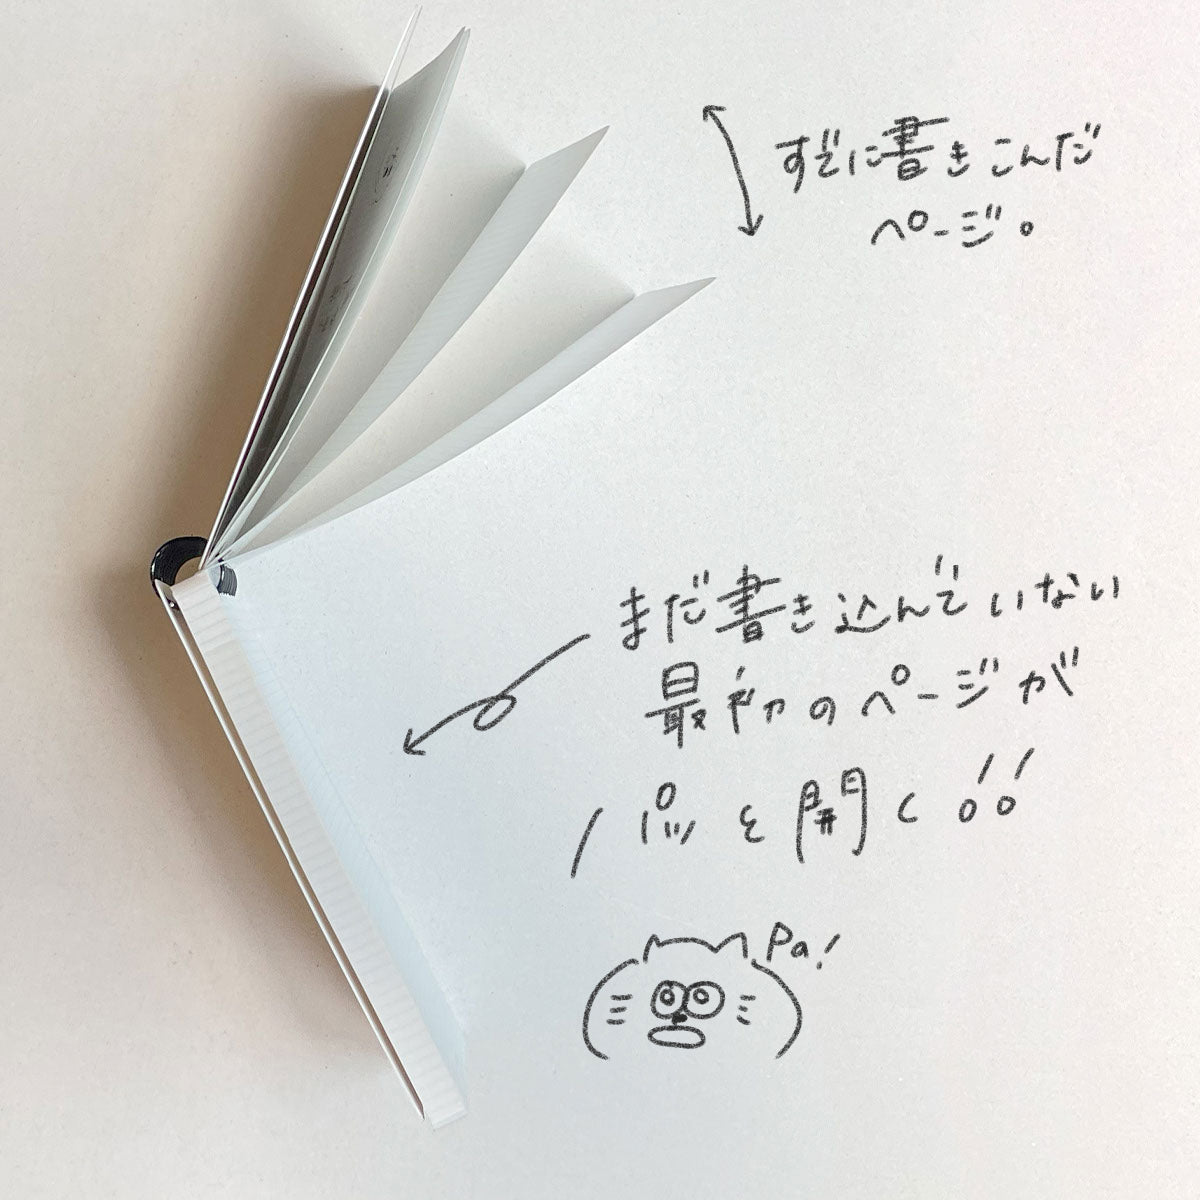 すでに書きこんだ
ページ。
まだ書き込んでいない
最初のページが
パッと開く!!
Pa!